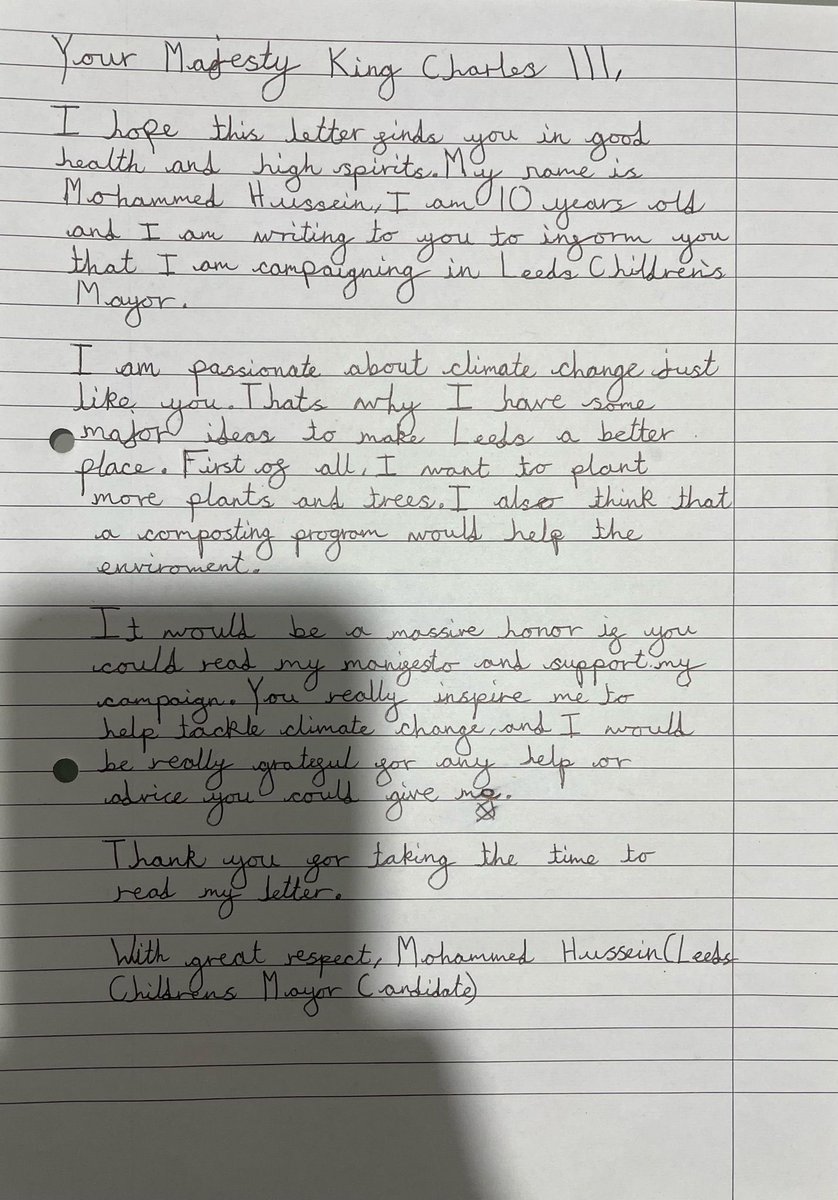 Your Majesty King Charles III,
I hope this letter finds you in good
health and high spirits. My name is
Mohammed Hussein, I am 10 years old
and I am writing to you to inform you
that I am campaigning in Leeds Children's
Mayor.
I am passionate about climate change just
like you. Thats why I have some
major ideas to make Leeds a better
place. First of all, I want to plant
more plants and trees. I also think that
a composting program would help the
enviroment.
It would be a massive honor if you
could read my manifesto and support my
campaign. You really inspire me to
help tackle climate change, and I would
be really grateful for any help or
advice you could give me.
Thank you for taking the time to
read my letter.
With great respect, Mohammed Hussein (Leeds
Childrens Mayor Candidate)